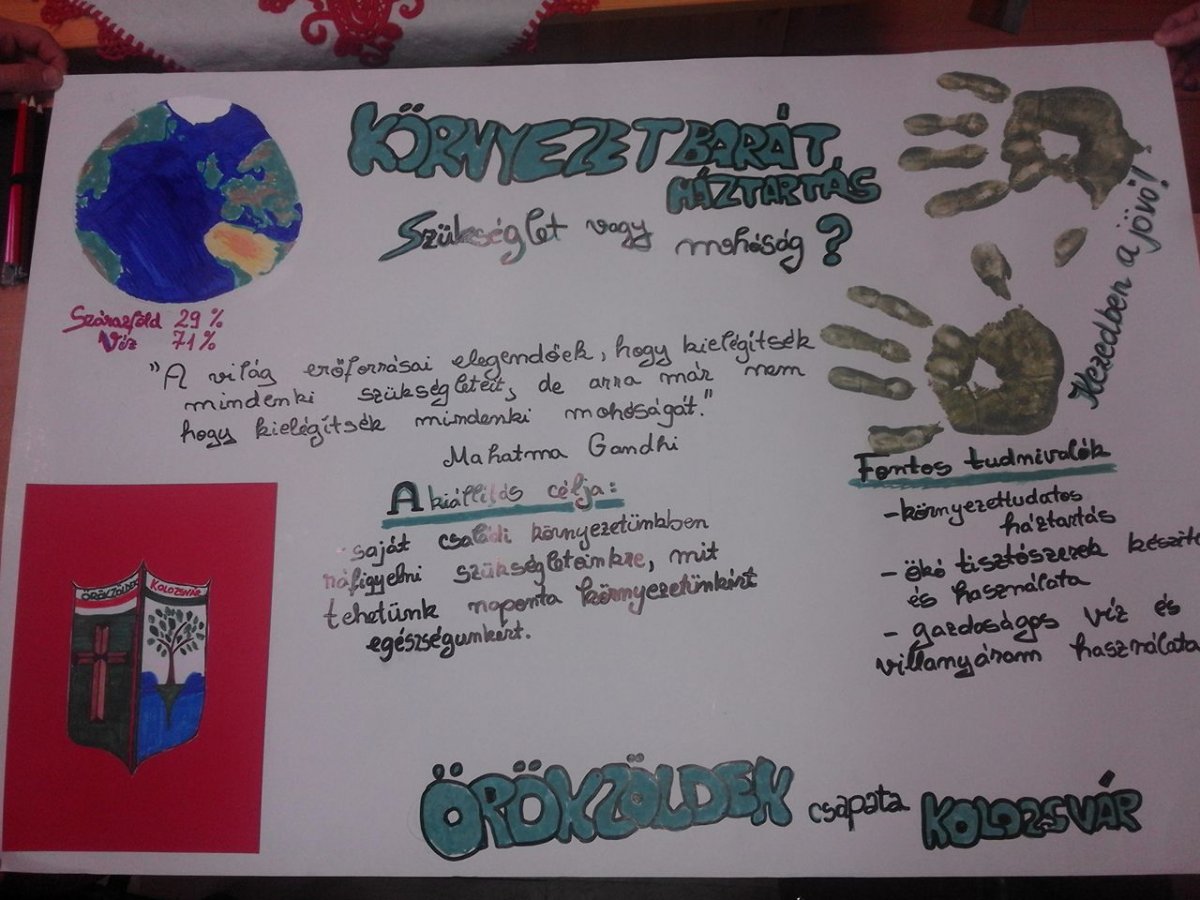 KÖRNYEZETBARÁT
HÁZTARTÁS
Szükséglet vagy mohóság?
Szárazföld 29%
Víz 71%
"A világ erőforrásai elegendőek, hogy kielégítsék
mindenki szükségleteit, de arra már nem
hogy kielégítsék mindenki mohóságát."
Mahatma Gandhi
A kiállítás célja:
saját családi környezetünkben
ráfigyelni szükségleteinkre, mit
tehetünk naponta környezetünkért
egészségünkért.
Kezedben a jövő!
Fontos tudnivalók
-környezettudatos
háztartás
- öko tisztószerek készíté
és használata
- gazdaságos víz és
villanyáram használata
ÖRÖKZÖLDEK KOLOZSVÁR
ÖRÖKZÖLDEK csapata KOLOZSVÁR